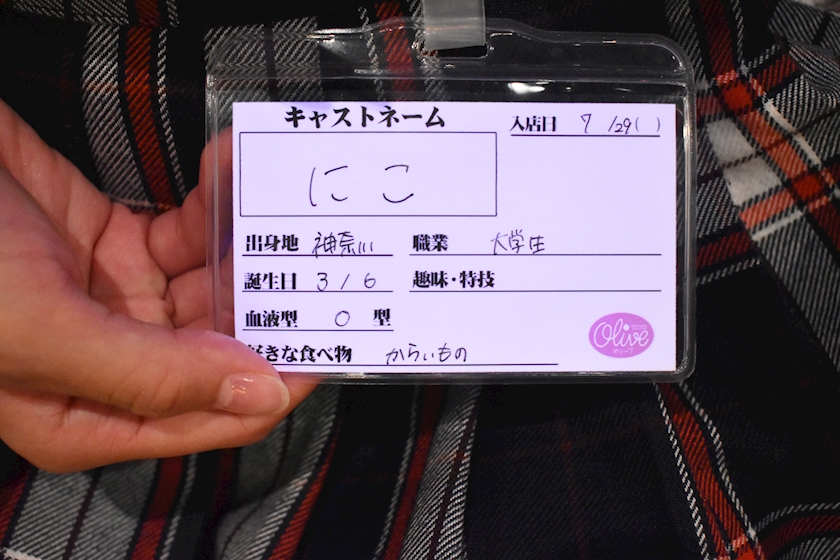 キャストネーム
入店日 7/29( )
にこ
出身地 神奈川
職業 大学生
誕生日 3/6
趣味・特技
血液型 O 型
好きな食べ物 からいもの
Olive
オリーブ